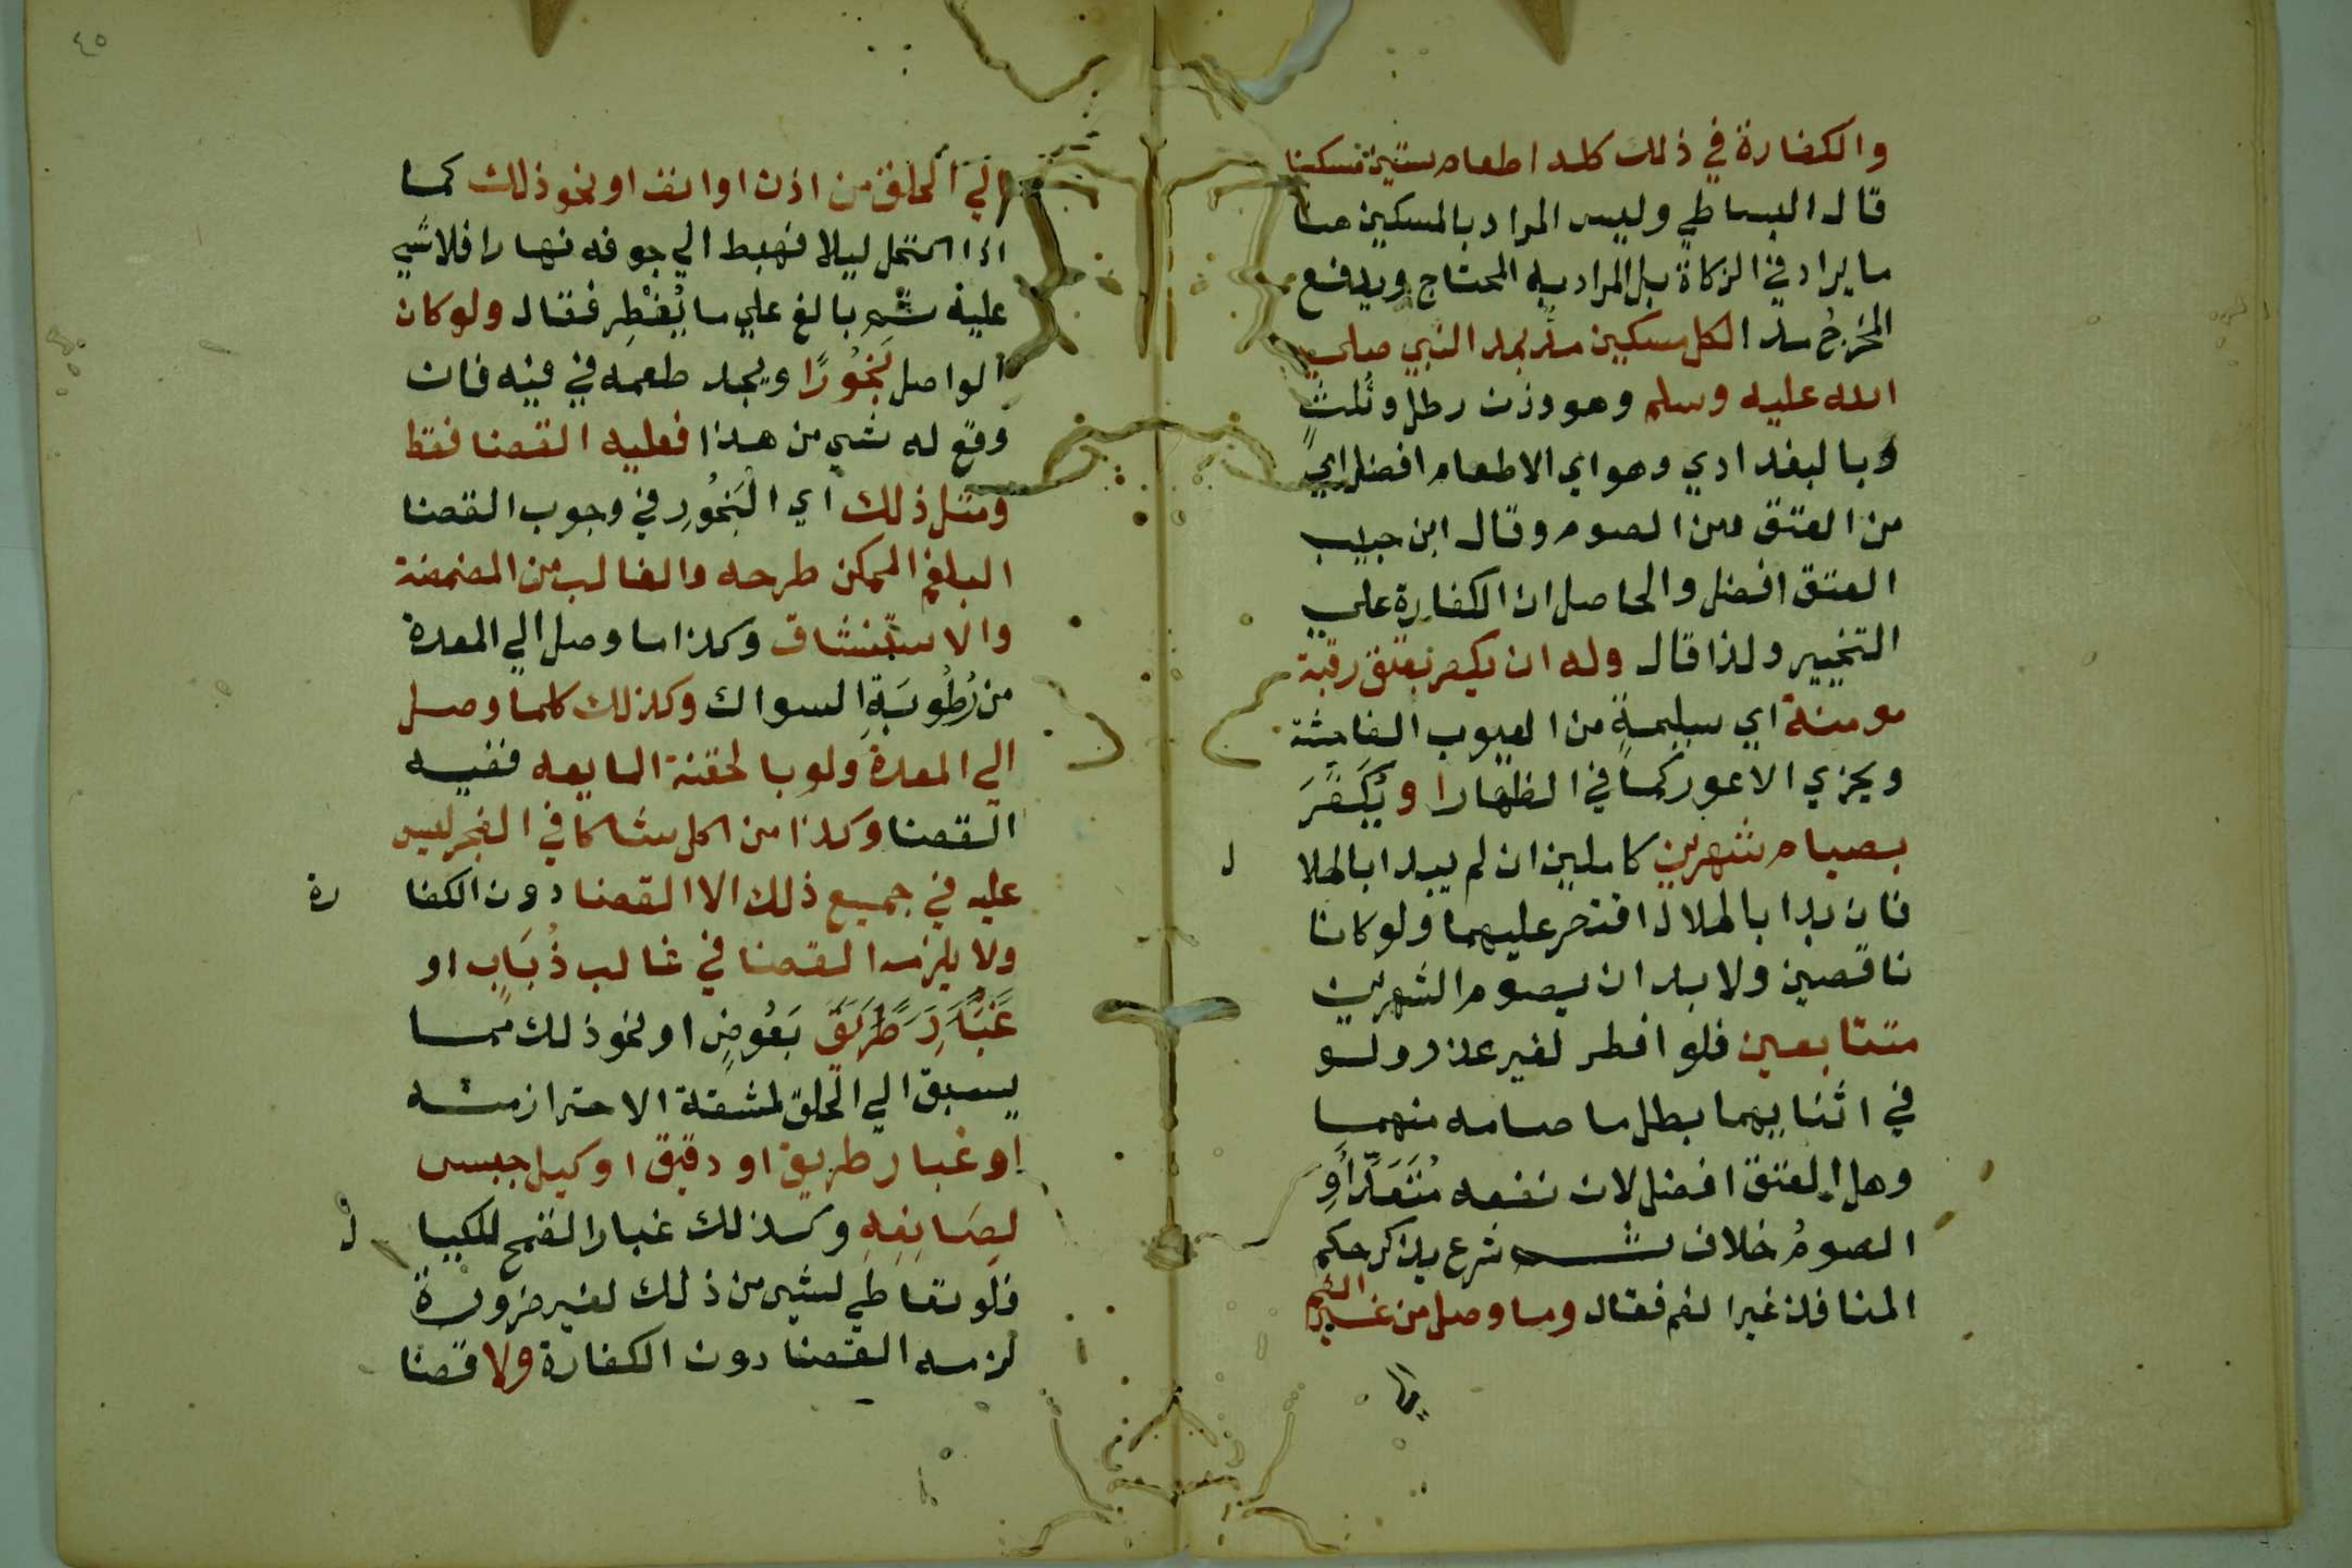 والكفارة في ذلك كله اطعام ستين مسكينا
قال البساطي وليس المراد بالمسكين هنا
ما يراد في الزكاة بل المراد به المحتاج ويدفع
المخرجُ مدا لكل مسكين مدٌ بمد النبي صلي
الله عليه وسلم وهو وزن رطل وثُلثٍ
وبالبغدادي وهو اي الاطعام افضل اي
من العتق ومن الصوم وقال ابن حبيب
العتق افضل والحاصل ان الكفارة علي
التخيير ولذا قال وله ان يكفر بعتق رقبة
مومنة اي سليمةٍ من العيوب الفاحشة
ويجزي الاعور كما في الظهار او يُكَفِّرَ
بصيام شهرين كاملين ان لم يبدا بالهلا
ل
فان بدا بالهلال اقتصر عليهما ولو كانا
ناقصين ولا بد ان يصوم الشهرين
متتابعين فلو افطر لغير عذر ولو
في اثنايهما بطل ما صامه منهما
وهل العتق افضل لان نفعه مُتَعَدٍّ اوِ
الصومُ خلاف ثم شرع يذكر حكم
المنافذ غير الفم فقال وما وصل من غير الفم
الي
الي الحلق من اذن او انف او نحو ذلك كما
اذا اكتحل ليلا فهبط الي جوفه نهارا فلا شي
عليه ثم بالغ علي ما يُفْطِر فقال ولو كان
الواصل بَخُورًا ويجد طعمه في فيه فان
وقع له شي من هذا فعليه القضا فقط
ومثل ذلك اي الْبَخُورِ في وجوب القضا
البلغم الممكن طرحه والغالب من المضمضة
والاستنشاق وكذا ما وصل الي المعدة
من رُطُوبَةِ السواك وكذلك كلما وصل
الي المعدة ولو بالحقنة المايعه ففيه
القضا وكذا من اكل شاكا في الفجر ليس
عليه في جميع ذلك الا القضا دون الكفا
رة
ولا يلزمه القضا في غالب ذُبَابٍ او
غُبَارِ طَرِيقٍ بَعُوضٍ او نحو ذلك مما
يسبق الي الحلق لمشقة الاحتراز منه
او غبار طريق او دقيق او كيل جبس
لِصَانِعِهِ وكذلك غبار القمح للكيا
ل
فلو تعاطي لشي من ذلك لغير ضرورة
لزمه القضا دون الكفارة ولا قضا
٤٥